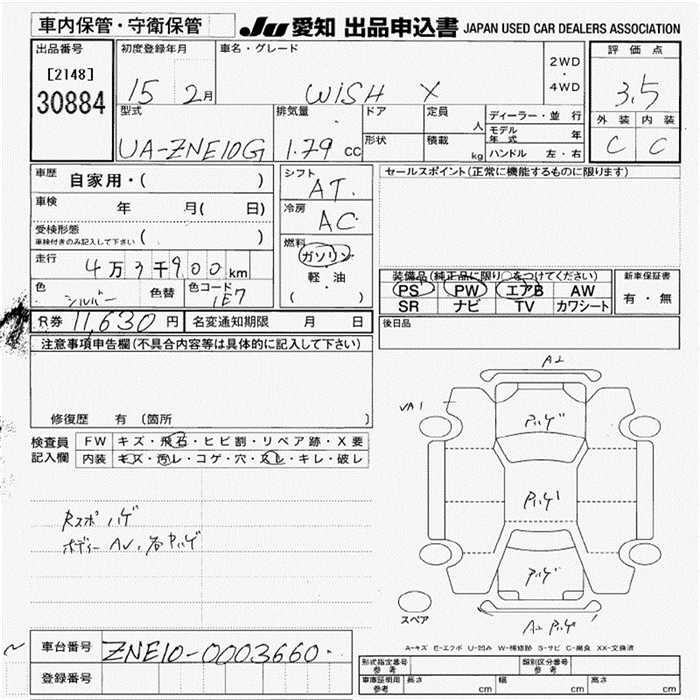 車内保管・守衛保管
JU 愛知 出品申込書 JAPAN USED CAR DEALERS ASSOCIATION
出品番号
[2148]
30884
初度登録年月
15 2月
車名・グレード
WISH X
2WD
・
4WD
評価点
3.5
外装 内装
C C
型式
UA-ZNE10G
排気量
1.79 cc
ドア
形状
定員
人
積載
kg
ディーラー・並 行
モデル年式 年
ハンドル 左・右
車歴 自家用・( )
車検 年 月( 日)
受検形態
車検付きのみ記入して下さい ( )
走行 4万3千900km
色 シルバー 色替 色コード 1E7
シフト
AT.
冷房
AC
燃料
ガソリン
・
軽・油
( )
セールスポイント(正常に機能するものに限ります)
装備品(純正品に限り○をつけてください)
PS PW エアB AW
SR ナビ TV カワシート
新車保証書
有・無
後日品
R券 11,630円 名変通知期限 月 日
注意事項申告欄(不具合内容等は具体的に記入して下さい)
修復歴 有 (箇所 )
検査員
記入欄
FW キズ・飛石・ヒビ割・リペア跡・X要
内装 キズ・汚レ・コゲ・穴・スレ・キレ・破レ
Rスポ ハゲ
ボディー AU、各Pハゲ
A2
UA1
Pハゲ
Pハゲ
Pハゲ
A2 Pハゲ
スペア
A-キズ E-エクボ U-凹み W-補修跡 S-サビ C-腐食 XX-交換済
車台番号 ZNE10-0003660.
登録番号
形式指定番号
参考
類別区分番号
参考
車庫証明用
参考
長さ cm 幅 cm 高さ cm